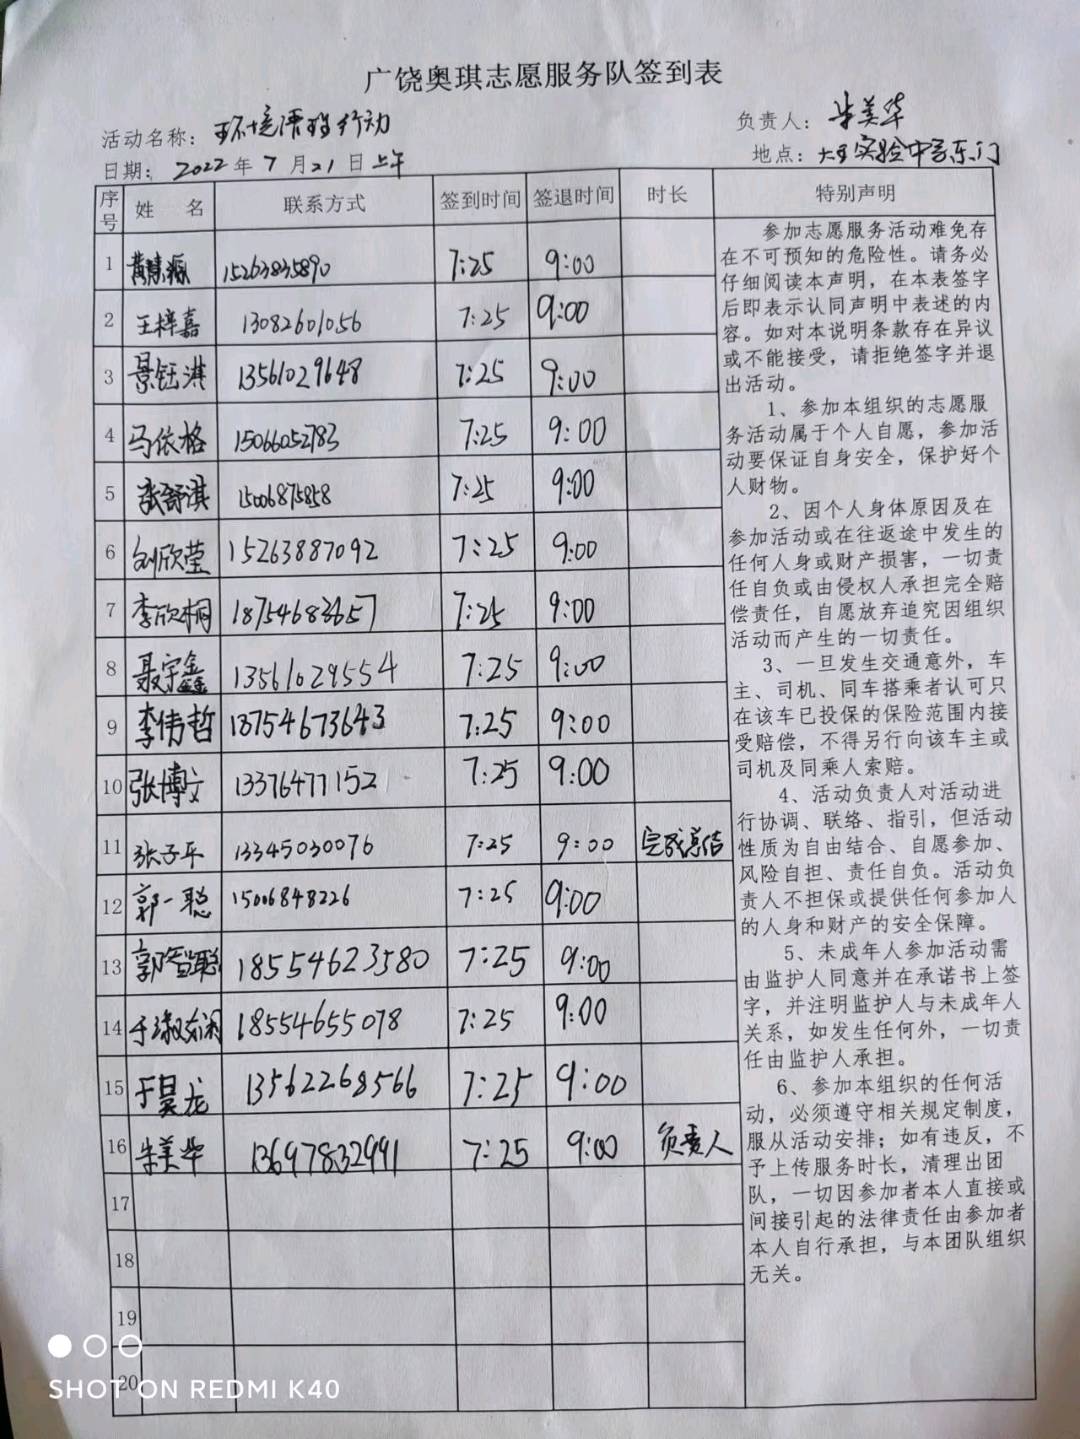 广饶奥琪志愿服务队签到表
活动名称：环境清理行动
负责人：朱美华
日期：2022年7月21日上午
地点：大王实验中学东门
序号 姓 名 联系方式 签到时间 签退时间 时长 特别声明
1 黄慧源 15263835890 7:25 9:00
2 王梓嘉 13082601056 7:25 9:00
3 景钰淇 13561029648 7:25 9:00
4 马依格 15066052783 7:25 9:00
5 张舒淇 15006875858 7:25 9:00
6 刘欣莹 15263887092 7:25 9:00
7 李欣桐 18754683657 7:25 9:00
8 聂宇鑫 13561029554 7:25 9:00
9 李伟哲 7:25 9:00
10 张博文 13376477152 7:25 9:00
11 张子平 13345030076 7:25 9:00 完成总结
12 郭一聪 15006848226 7:25 9:00
13 郭智聪 18554623580 7:25 9:00
14 于淑 18554655078 7:25 9:00
15 于昊龙 13562268566 7:25 9:00
16 朱美华 13697832991 7:25 9:00 负责人
17
18
19
20
参加志愿服务活动难免存
在不可预知的危险性。请务必
仔细阅读本声明，在本表签字
后即表示认同声明中表述的内
容。如对本说明条款存在异议
或不能接受，请拒绝签字并退
出活动。
1、参加本组织的志愿服
务活动属于个人自愿，参加活
动要保证自身安全，保护好个
人财物。
2、因个人身体原因及在
参加活动或在往返途中发生的
任何人身或财产损害，一切责
任自负或由侵权人承担完全赔
偿责任，自愿放弃追究因组织
活动而产生的一切责任。
3、一旦发生交通意外，车
主、司机、同车搭乘者认可只
在该车已投保的保险范围内接
受赔偿，不得另行向该车主或
司机及同乘人索赔。
4、活动负责人对活动进
行协调、联络、指引，但活动
性质为自由结合、自愿参加、
风险自担、责任自负。活动负
责人不担保或提供任何参加人
的人身和财产的安全保障。
5、未成年人参加活动需
由监护人同意并在承诺书上签
字，并注明监护人与未成年人
关系，如发生任何外，一切责
任由监护人承担。
6、参加本组织的任何活
动，必须遵守相关规定制度，
服从活动安排；如有违反，不
予上传服务时长，清理出团
队，一切因参加者本人直接或
间接引起的法律责任由参加者
本人自行承担，与本团队组织
无关。
SHOT ON REDMI K40